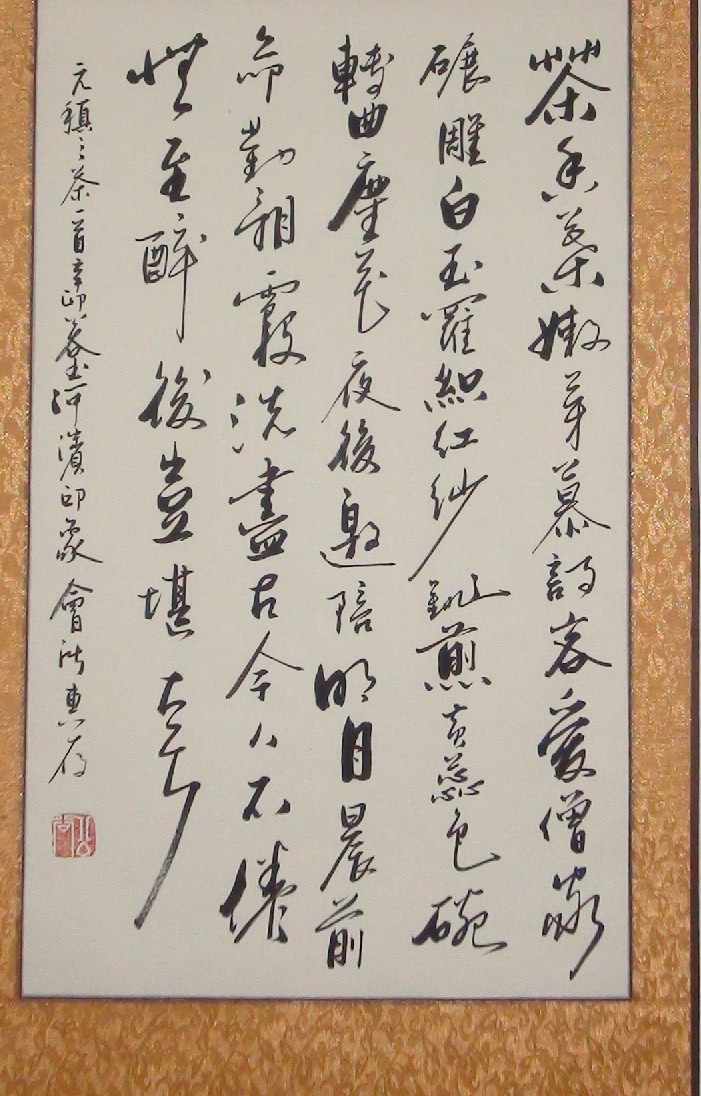 茶香葉嫩芽慕詩客愛僧家
碾雕白玉羅織紅紗銚煎黃蕊色碗
轉曲塵花夜後邀陪明月晨前
命對朝霞洗盡古今人不倦
將至醉後豈堪夸
元稹之茶一首辛卯河濱印象會所惠存